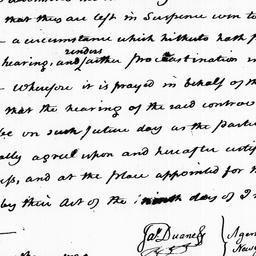 that they are left in Suspence
a circumstance which hitherto hath
renders
hearing, and farther Procrastination
Wherefore it is prayed in behalf of th
that the hearing of the said controve
be on such future day as the Partie
ally agree upon and hereafter certif
ess, and at the place appointed for th
by their Act of the ninth day of J
Jas. Duane
Agen